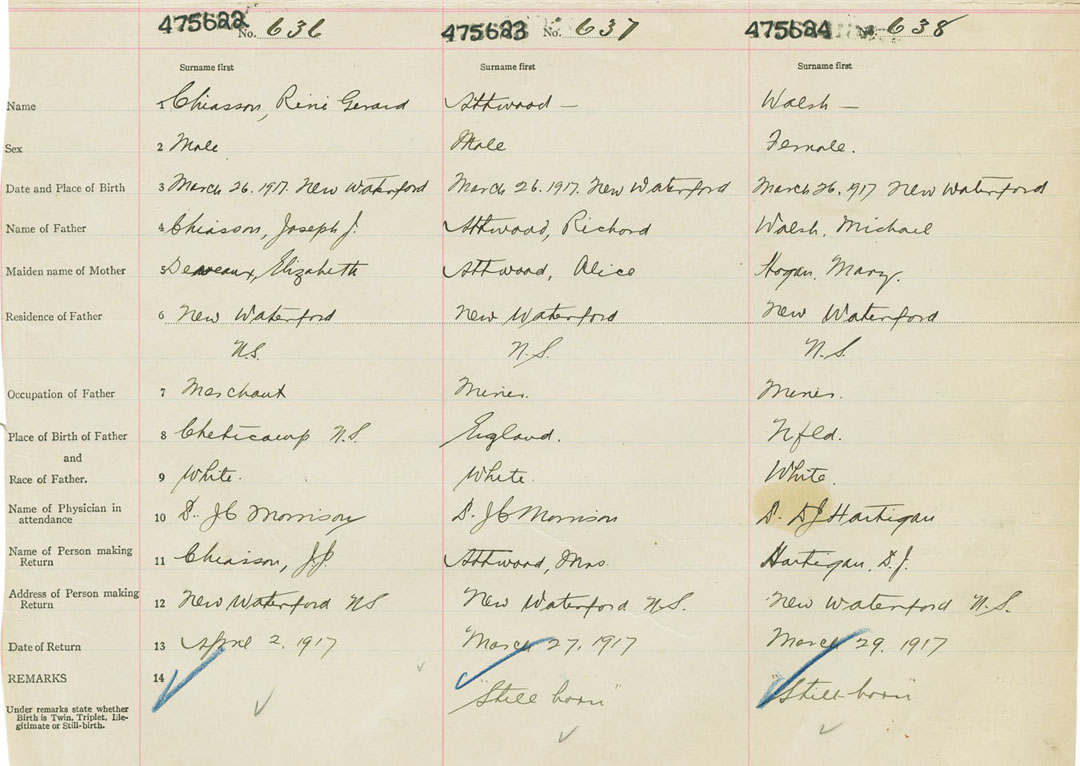 475622 No. 636 475623 No. 637 475624 No. 638
Surname first Surname first Surname first
Name 1 Chiasson, Rini Gerard Attwood — Walsh —
Sex 2 Male Male Female.
Date and Place of Birth 3 March 26. 1917. New Waterford March 26. 1917. New Waterford March 26. 1917 New Waterford
Name of Father 4 Chiasson, Joseph J. Attwood, Richard Walsh, Michael
Maiden name of Mother 5 Deaveaux, Elizabeth Attwood, Alice Hogan, Mary.
Residence of Father 6 New Waterford New Waterford New Waterford
N.S. N.S. N.S.
Occupation of Father 7 Merchant Miner. Miner.
Place of Birth of Father 8 Cheticamp N.S. England. Nfld.
and
Race of Father. 9 White. White. White.
Name of Physician in
attendance 10 D. JC Morrison D. JC Morrison D. DJ Hartigan
Name of Person making
Return 11 Chiasson, J.J. Attwood, Mrs. Hartigan, D.J.
Address of Person making
Return 12 New Waterford NS New Waterford N.S. New Waterford N.S.
Date of Return 13 April 2. 1917 March 27, 1917 March 29. 1917
REMARKS 14 "Still born" "Still-born"
Under remarks state whether
Birth is Twin, Triplet, Ille-
gitimate or Still-birth.